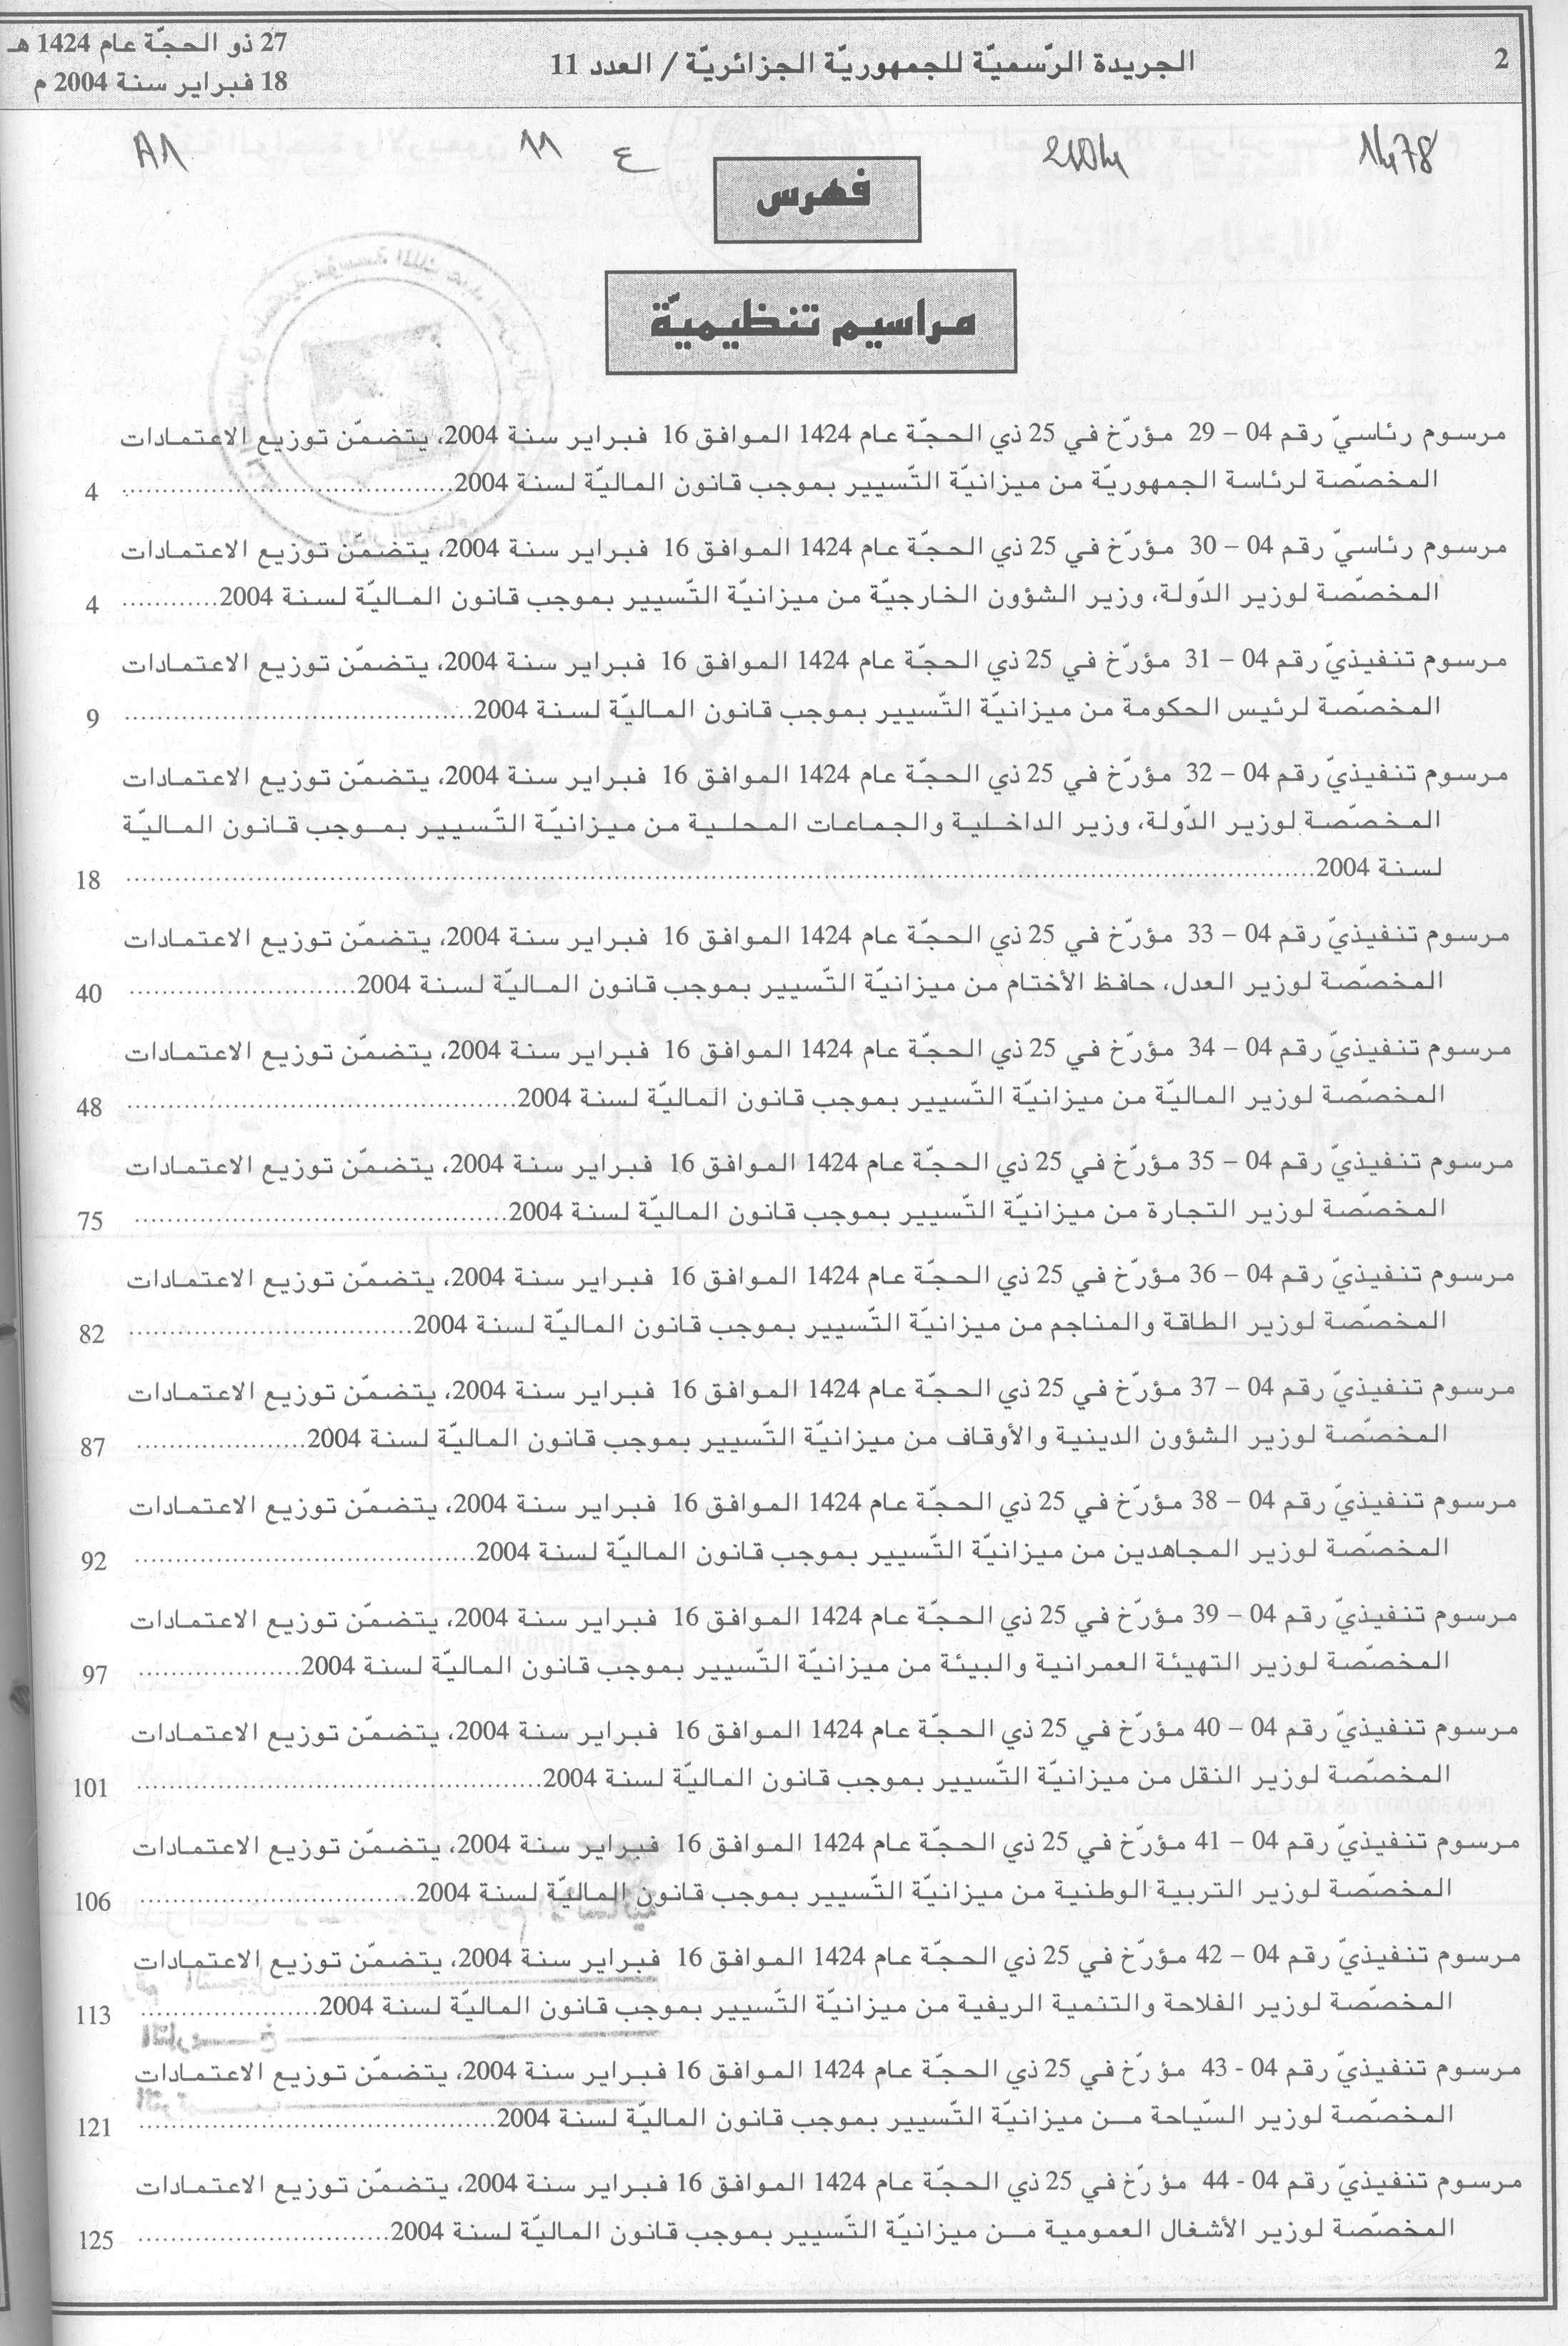 2
الجريدة الرّسميّة للجمهوريّة الجزائريّة / العدد 11
27 ذو الحجّة عام 1424 هـ
18 فبراير سنة 2004 م
ع 11
فهرس
مراسيم تنظيميّة
مرسوم رئاسيّ رقم 04 – 29 مؤرّخ في 25 ذي الحجّة عام 1424 الموافق 16 فبراير سنة 2004، يتضمّن توزيع الاعتمادات
المخصّصة لرئاسة الجمهوريّة من ميزانيّة التّسيير بموجب قانون الماليّة لسنة 2004 4
مرسوم رئاسيّ رقم 04 – 30 مؤرّخ في 25 ذي الحجّة عام 1424 الموافق 16 فبراير سنة 2004، يتضمّن توزيع الاعتمادات
المخصّصة لوزير الدّولة، وزير الشؤون الخارجيّة من ميزانيّة التّسيير بموجب قانون الماليّة لسنة 2004 4
مرسوم تنفيذيّ رقم 04 – 31 مؤرّخ في 25 ذي الحجّة عام 1424 الموافق 16 فبراير سنة 2004، يتضمّن توزيع الاعتمادات
المخصّصة لرئيس الحكومة من ميزانيّة التّسيير بموجب قانون الماليّة لسنة 2004 9
مرسوم تنفيذيّ رقم 04 – 32 مؤرّخ في 25 ذي الحجّة عام 1424 الموافق 16 فبراير سنة 2004، يتضمّن توزيع الاعتمادات
المخصّصة لوزير الدّولة، وزير الداخلية والجماعات المحلية من ميزانيّة التّسيير بموجب قانون الماليّة
لسنة 2004 18
مرسوم تنفيذيّ رقم 04 – 33 مؤرّخ في 25 ذي الحجّة عام 1424 الموافق 16 فبراير سنة 2004، يتضمّن توزيع الاعتمادات
المخصّصة لوزير العدل، حافظ الأختام من ميزانيّة التّسيير بموجب قانون الماليّة لسنة 2004 40
مرسوم تنفيذيّ رقم 04 – 34 مؤرّخ في 25 ذي الحجّة عام 1424 الموافق 16 فبراير سنة 2004، يتضمّن توزيع الاعتمادات
المخصّصة لوزير الماليّة من ميزانيّة التّسيير بموجب قانون الماليّة لسنة 2004 48
مرسوم تنفيذيّ رقم 04 – 35 مؤرّخ في 25 ذي الحجّة عام 1424 الموافق 16 فبراير سنة 2004، يتضمّن توزيع الاعتمادات
المخصّصة لوزير التجارة من ميزانيّة التّسيير بموجب قانون الماليّة لسنة 2004 75
مرسوم تنفيذيّ رقم 04 – 36 مؤرّخ في 25 ذي الحجّة عام 1424 الموافق 16 فبراير سنة 2004، يتضمّن توزيع الاعتمادات
المخصّصة لوزير الطاقة والمناجم من ميزانيّة التّسيير بموجب قانون الماليّة لسنة 2004 82
مرسوم تنفيذيّ رقم 04 – 37 مؤرّخ في 25 ذي الحجّة عام 1424 الموافق 16 فبراير سنة 2004، يتضمّن توزيع الاعتمادات
المخصّصة لوزير الشؤون الدينية والأوقاف من ميزانيّة التّسيير بموجب قانون الماليّة لسنة 2004 87
مرسوم تنفيذيّ رقم 04 – 38 مؤرّخ في 25 ذي الحجّة عام 1424 الموافق 16 فبراير سنة 2004، يتضمّن توزيع الاعتمادات
المخصّصة لوزير المجاهدين من ميزانيّة التّسيير بموجب قانون الماليّة لسنة 2004 92
مرسوم تنفيذيّ رقم 04 – 39 مؤرّخ في 25 ذي الحجّة عام 1424 الموافق 16 فبراير سنة 2004، يتضمّن توزيع الاعتمادات
المخصّصة لوزير التهيئة العمرانية والبيئة من ميزانيّة التّسيير بموجب قانون الماليّة لسنة 2004 97
مرسوم تنفيذيّ رقم 04 – 40 مؤرّخ في 25 ذي الحجّة عام 1424 الموافق 16 فبراير سنة 2004، يتضمّن توزيع الاعتمادات
المخصّصة لوزير النقل من ميزانيّة التّسيير بموجب قانون الماليّة لسنة 2004 101
مرسوم تنفيذيّ رقم 04 – 41 مؤرّخ في 25 ذي الحجّة عام 1424 الموافق 16 فبراير سنة 2004، يتضمّن توزيع الاعتمادات
المخصّصة لوزير التربية الوطنية من ميزانيّة التّسيير بموجب قانون الماليّة لسنة 2004 106
مرسوم تنفيذيّ رقم 04 – 42 مؤرّخ في 25 ذي الحجّة عام 1424 الموافق 16 فبراير سنة 2004، يتضمّن توزيع الاعتمادات
المخصّصة لوزير الفلاحة والتنمية الريفية من ميزانيّة التّسيير بموجب قانون الماليّة لسنة 2004 113
مرسوم تنفيذيّ رقم 04 - 43 مؤرّخ في 25 ذي الحجّة عام 1424 الموافق 16 فبراير سنة 2004، يتضمّن توزيع الاعتمادات
المخصّصة لوزير السّياحة مـن ميزانيّة التّسيير بموجب قانون الماليّة لسنة 2004 121
مرسوم تنفيذيّ رقم 04 - 44 مؤرّخ في 25 ذي الحجّة عام 1424 الموافق 16 فبراير سنة 2004، يتضمّن توزيع الاعتمادات
المخصّصة لوزير الأشغال العمومية مـن ميزانيّة التّسيير بموجب قانون الماليّة لسنة 2004 125